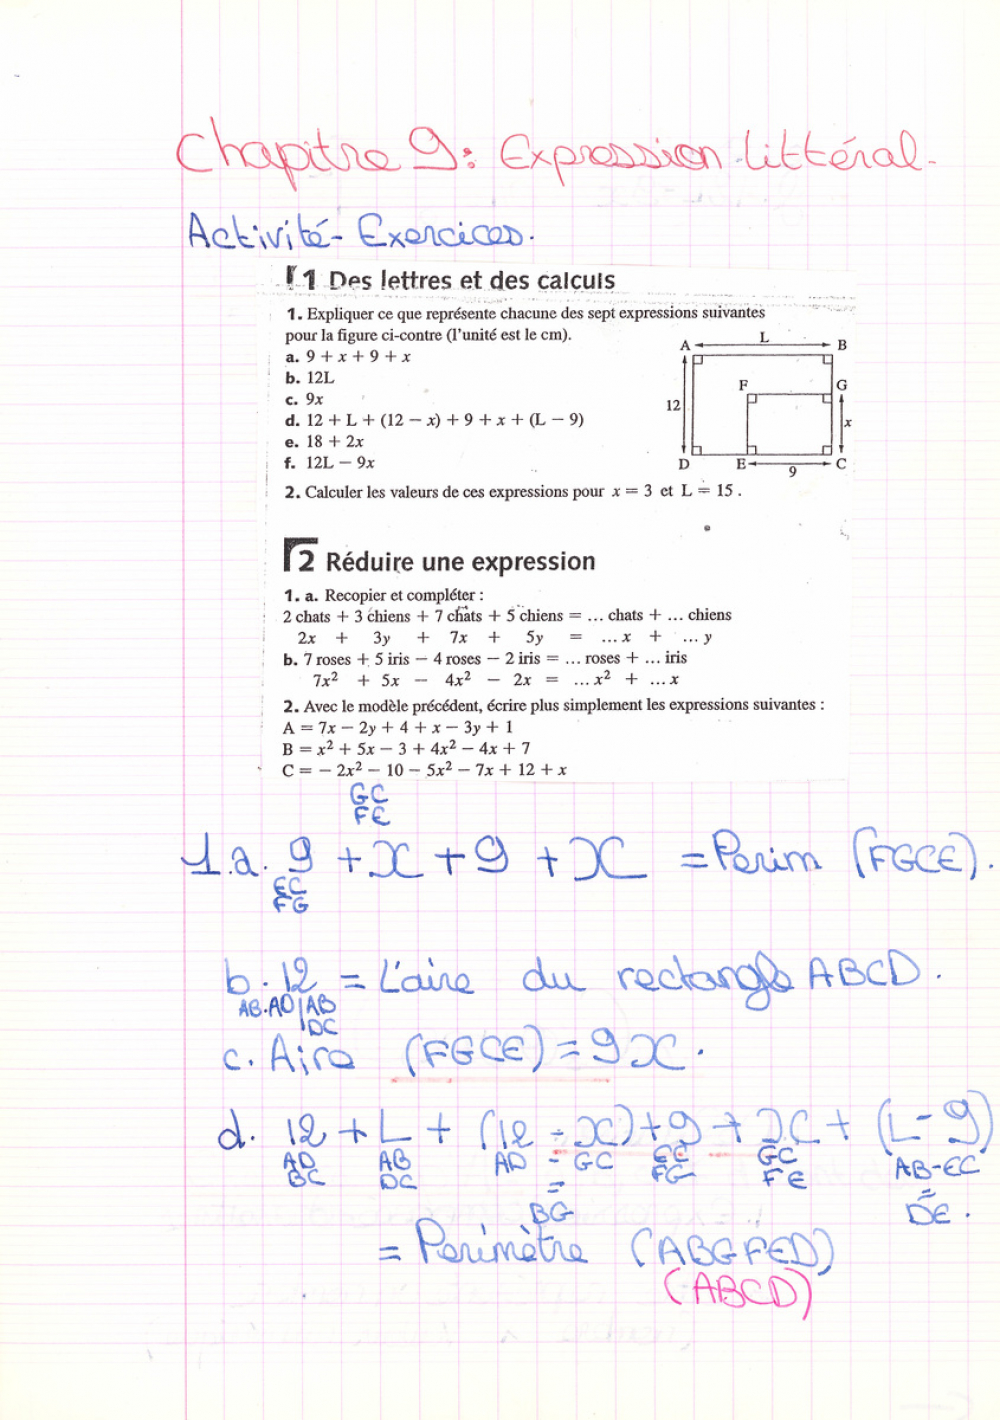 Chapitre 9: Expression littéral.
Activité - Exercices.
1 Des lettres et des calculs
1. Expliquer ce que représente chacune des sept expressions suivantes
pour la figure ci-contre (l'unité est le cm).
a. 9 + x + 9 + x
b. 12L
c. 9x
d. 12 + L + (12 − x) + 9 + x + (L − 9)
e. 18 + 2x
f. 12L − 9x
A L B
F G
12 x
D E 9 C
2. Calculer les valeurs de ces expressions pour x = 3 et L = 15.
2 Réduire une expression
1. a. Recopier et compléter :
2 chats + 3 chiens + 7 chats + 5 chiens = ... chats + ... chiens
2x + 3y + 7x + 5y = ... x + ... y
b. 7 roses + 5 iris − 4 roses − 2 iris = ... roses + ... iris
7x² + 5x − 4x² − 2x = ... x² + ... x
2. Avec le modèle précédent, écrire plus simplement les expressions suivantes :
A = 7x − 2y + 4 + x − 3y + 1
B = x² + 5x − 3 + 4x² − 4x + 7
C = − 2x² − 10 − 5x² − 7x + 12 + x
GC
FE
1.a. 9 + x + 9 + x = Perim (FGCE).
EC
FG
b. 12 = L'aire du rectangle ABCD.
AB.AD | AB
DC
c. Aire (FGCE) = 9x.
d. 12 + L + (12 - x) + 9 + x + (L - 9)
AD AB AD - GC EC GC AB-EC
BC DC = FG FE =
BG DE.
= Perimètre (ABGFED)
(ABCD)